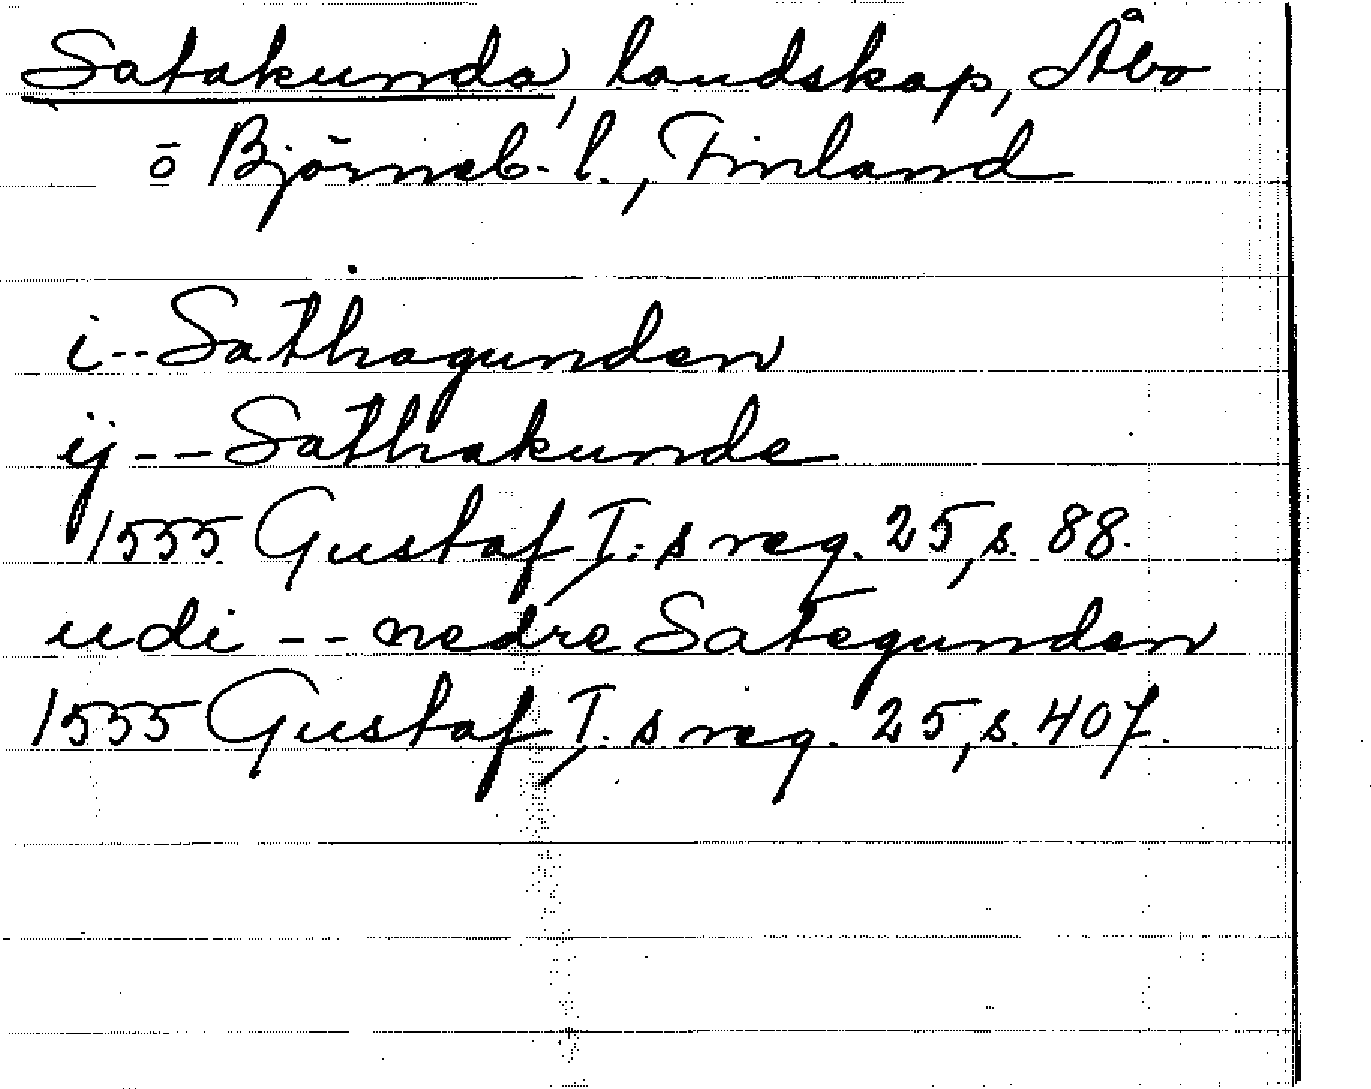 Satakunda, landskap, Åbo
o Björneb. l., Finland
i -- Sathagunden
ij -- Sathakunde
1555 Gustaf I:s reg. 25, s. 88.
udi -- nedre Sategunden
1555 Gustaf I:s reg. 25, s. 407.